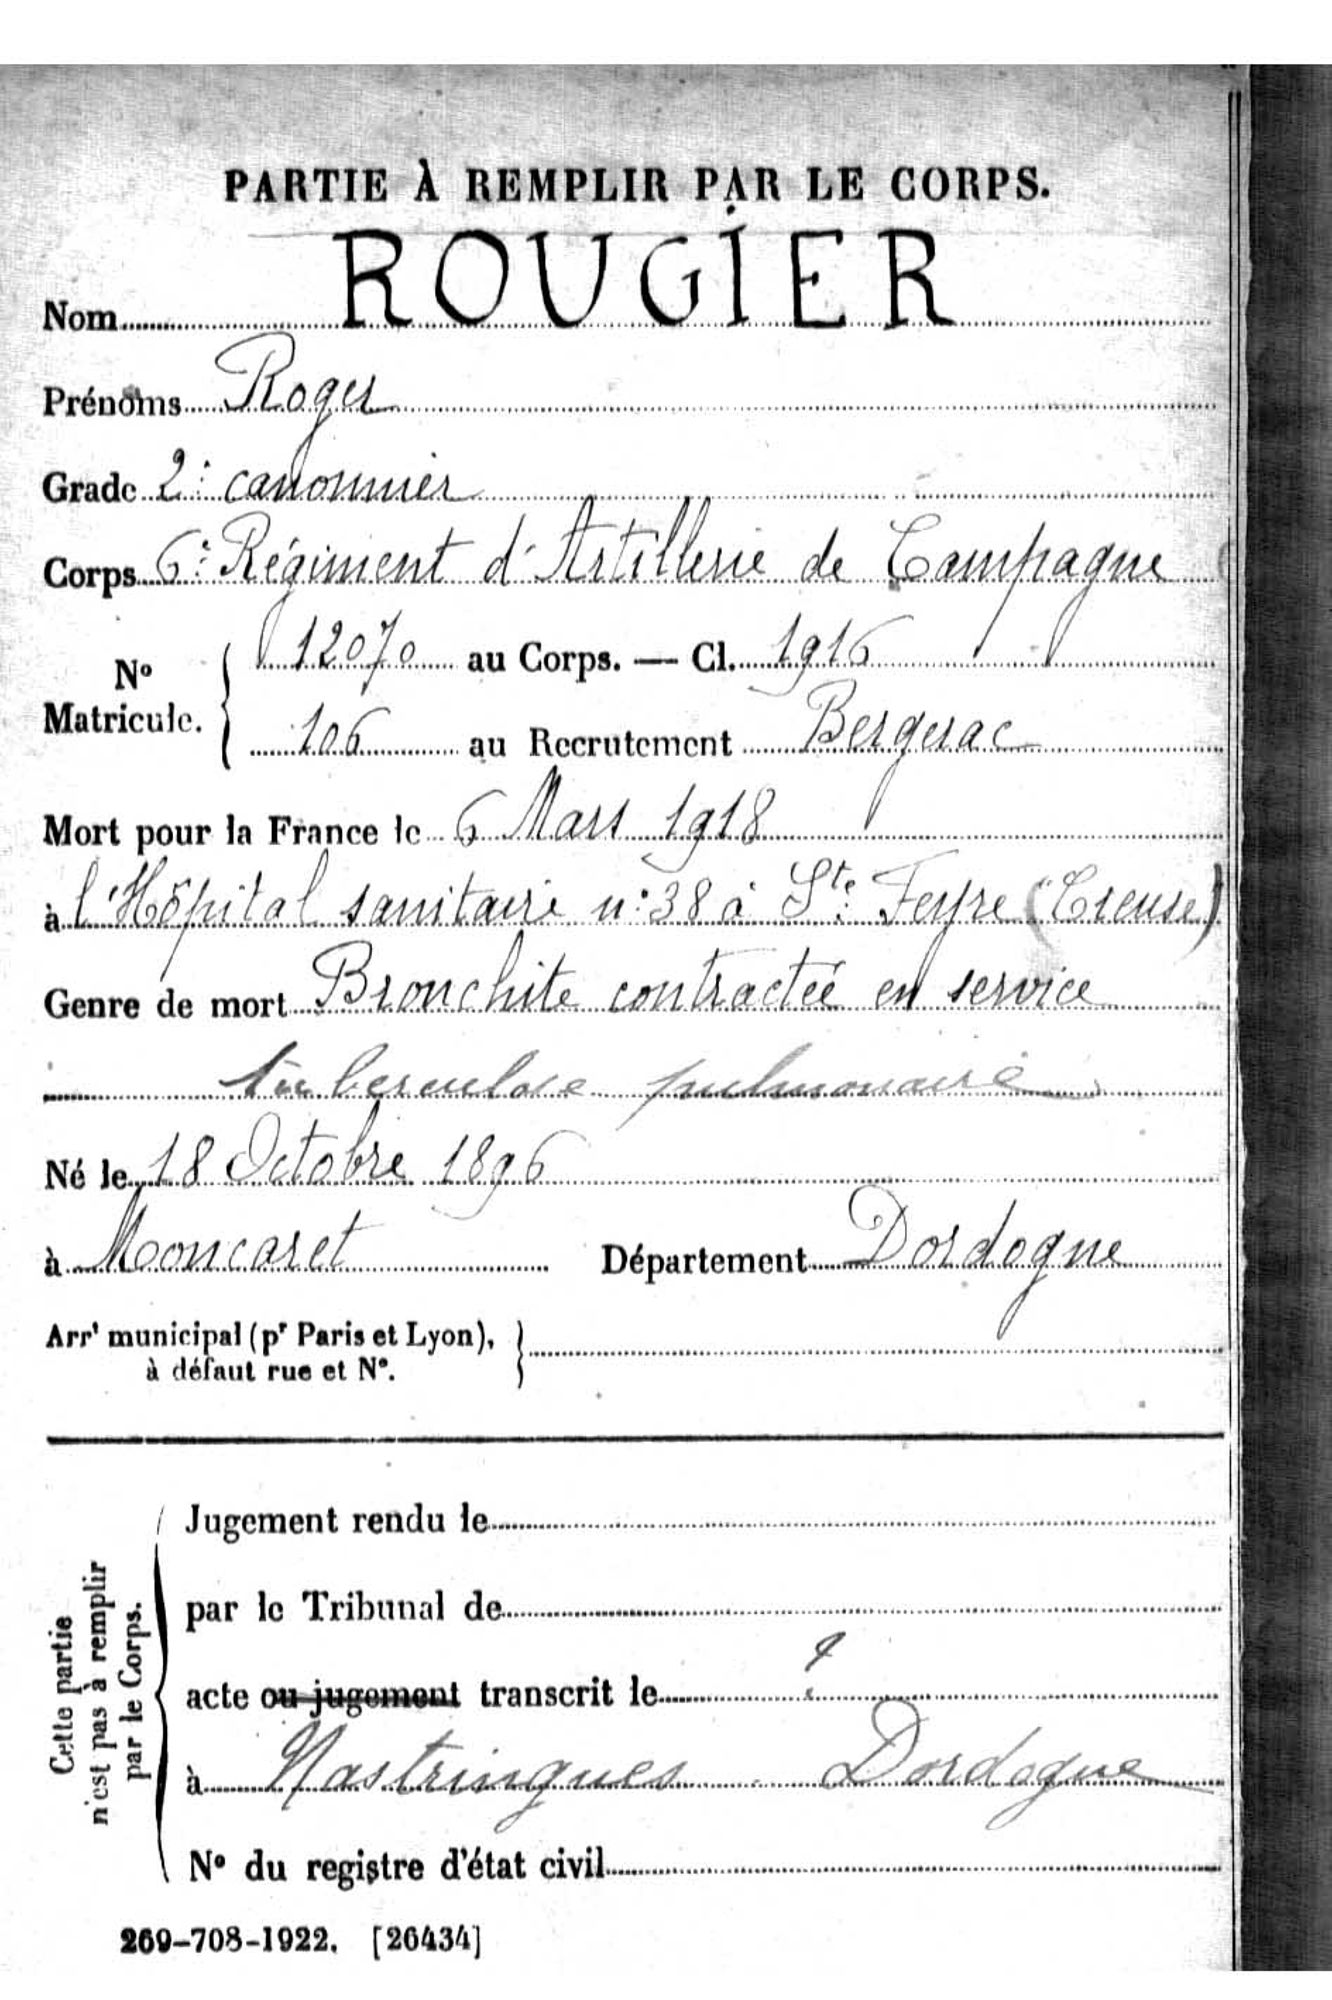 PARTIE À REMPLIR PAR LE CORPS.
Nom ROUGIER
Prénoms Roger
Grade 2e canonnier
Corps 6e Régiment d'Artillerie de Campagne
No Matricule. 12070 au Corps. — Cl. 1916
106 au Recrutement Bergerac
Mort pour la France le 6 Mars 1918
à l'Hôpital sanitaire n° 38 à Ste Feyre (Creuse)
Genre de mort Bronchite contractée en service
tuberculose pulmonaire
Né le 18 Octobre 1896
à Moncaret Département Dordogne
Arrt municipal (pr Paris et Lyon),
à défaut rue et No.
Cette partie n'est pas à remplir par le Corps.
Jugement rendu le
par le Tribunal de
acte ou jugement transcrit le ?
à Nastringues Dordogne
No du registre d'état civil
269-708-1922. [26434]